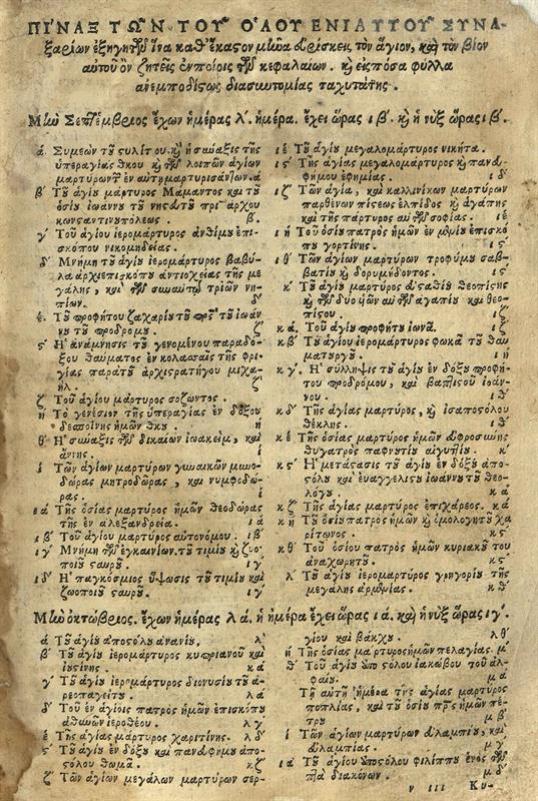 ΠΙΝΑΞ ΤΩΝ ΤΟΥ ΟΛΟΥ ΕΝΙΑΥΤΟΥ ΣΥΝΑ-
ξαρίων ἐξηγητὴς ἵνα καθ' ἕκαστον μῆνα εὑρίσκεις τὸν ἅγιον, καὶ τὸν βίον
αὐτοῦ ὃν ζητεῖς ἐν ποίοις τῶν κεφαλαίων. καὶ εἰς πόσα φύλλα
ἀνεμποδίστως διασυντομίας ταχυτάτης.
Μὴν Σεπτέμβριος ἔχων ἡμέρας λ'. ἡμέρα. ἔχει ὥρας ιβ'. καὶ ἡ νὺξ ὥρας ιβ'.
ά Συμεὼν τοῦ στυλίτου. καὶ ἡ σύναξις τῆς
ὑπεραγίας θκου καὶ τῶν λοιπῶν ἁγίων
β' Τοῦ ἁγίου μάρτυρος Μάμαντος καὶ τοῦ
ὁσίου ἰωάννου τοῦ νηστευτοῦ πατριάρχου
κωνσταντινυπόλεως. β.
γ' Τοῦ ἁγίου ἱερομάρτυρος ἀνθίμου ἐπι-
σκόπου νικομηδείας.
δ' Μνήμη τοῦ ἁγίου ἱερομάρτυρος βαβύ-
λα ἀρχιεπισκόπου ἀντιοχείας τῆς με
γάλης, καὶ τῶν σὺν αὐτῷ τριῶν νη-
πίων. δ'
έ. Τοῦ προφήτου ζαχαρίου τοῦ πατρὸς τοῦ ἰωάν
νου τοῦ προδρόμου. ζ
ς' Ἡ ἀνάμνησις τοῦ γενομένου παραδό-
ξου θαύματος ἐν κολασσαῖς τῆς φρι-
γίας παρὰ τοῦ ἀρχιστρατήγου μιχα-
ήλ. ζ
ζ Τοῦ ἁγίου μάρτυρος σοζωντος.
ή Τὸ γενέσιον τῆς ὑπεραγίας ἐν δόξου
δεσποίνης ἡμῶν θκου. ή
θ' Ἡ σύναξις τῶν δικαίων ἰωακείμ, καὶ
ἄννης. ί
ί Τῶν ἁγίων μαρτύρων γυναικῶν μινο-
δώρας μητροδώρας, καὶ νυμφοδώ-
ρας. ί
ιά Τῆς ὁσίας μαρτυρος ἡμῶν θεοδώρας
τῆς ἐν ἀλεξανδρεία. ιά
ιβ' Τοῦ ἁγίου μάρτυρος αὐτονόμου. ιβ'
ιγ' Μνήμη τῶν ἐγκαινίων. τοῦ τιμίου καὶ ζωο
ποιοῦ σαυροῦ. ιγ'
ιδ' Ἡ παγκόσμιος ὕψωσις τοῦ τιμίου καὶ
ζωοποιοῦ σαυροῦ. ιγ'
ιέ Τοῦ ἁγίου μεγαλομάρτυρος νικήτα.
ις' Τῆς ἁγίας μεγαλομάρτυρος καὶ πανευ-
φήμου εὐφημίας. ιδ'
ιζ Τῶν ἁγία, καὶ καλλινίκων μαρτύρων
παρθένων πίστεως ἐλπίδος καὶ ἀγάπης
καὶ τῆς μητρὸς αὐτῶν σοφίας. ιέ
ιή Τοῦ ὁσίου πατρὸς ἡμῶν εὐμενίου ἐπισκό
που γορτίνης. ις'
ιθ' Τῶν ἁγίων μαρτύρων τροφύμου σαβ-
βατίου καὶ δορυμήδοντος. ις'
κ' Τοῦ ἁγίου μάρτυρος εὐσταθίου θεοπίστης
καὶ τῶν δύο υἱῶν αὐτοῦ ἀγαπίου καὶ θεο-
πίστου. ιζ
κά. Τοῦ ἁγίου προφήτου ἰωνᾶ. ιζ
κβ' Τοῦ ἁγίου ἱερομάρτυρος φωκᾶ τοῦ θαυ
ματυργοῦ. ιή
κγ'. Ἡ σύλληψις τοῦ ἁγίου ἐν δόξου προφή-
του προδρόμου, καὶ βαπτιστοῦ ἰωάν-
νου. ιθ'
κδ' Τῆς ἁγίας μαρτύρος, καὶ ἰσαποστόλου
θέκλης. ιθ'
κέ Τῆς ὁσίας μαρτύρος ἡμῶν εὐφροσύνης
θυγατρὸς παφνυτίου αἰγυπτίου. κ'
κς' Ἡ μετάστασις τοῦ ἁγίου ἐν δόξου ἀποστό-
λου καὶ εὐαγγελιστοῦ ἰωάννου τοῦ θεο-
λόγου. κά
κζ Τῆς ἁγίας μάρτυρος ἐπιχάρεος. κά
κή Τοῦ ὁσίου πατρὸς ἡμῶν καὶ ὁμολογητοῦ χα
ρίτωνος. κς'
κθ' Τοῦ ὁσίου πατρὸς ἡμῶν κυριακοῦ του
ἀναχωρητοῦ. κς'
λ' Τοῦ ἁγίου ἱερομάρτυρος γρηγορίου τῆς
μεγάλης ἀρμωνίας. κθ'
Μὴν ὀκτώβριος. ἔχων ἡμέρας λά. ἡ ἡμέρα ἔχει ὥρας ιά. καὶ ἡ νὺξ ὥρας ιγ'.
ά Τοῦ ἁγίου ἀποστόλου ἀνανίου. λ'
β' Τοῦ ἁγίου ἱερομάρτυρος κυπριανοῦ καὶ
ἰυστίνης. κά
γ' Τοῦ ἁγίου ἱερομάρτυρος διονυσίου τοῦ ἀ-
ρεοπαγείτου. λά
δ' Τοῦ ἐν ἁγίοις πατρὸς ἡμῶν ἐπισκόπου
ἀθηνῶν ἱεροθέου. λγ
έ Τῆς ἁγίας μάρτυρος χαριτίνης. λδ'
ς' Τοῦ ἁγίου ἐν δόξου καὶ πανευφήμου ἀπο-
στόλου θωμᾶ. κζ
ζ Τῶν ἁγίων μεγάλων μαρτύρων σερ-
γίου καὶ βάκχου. λθ'
ή Τῆς ὁσίας μαρτυρος ἡμῶν πελαγίας. μ'
θ' Τοῦ ἁγίου ἀποστόλου ἰακώβου τοῦ ἀλ-
φαίου. μά
Τῇ αὐτῇ ἡμέρα τῆς ἁγίας μάρτυρος
ποπλίας, καὶ τοῦ ὁσίου πατρὸς ἡμῶν πέ-
τρου μβ'
ί Τῶν ἁγίων μαρτύρων εὐλαμπίου, καὶ
εὐλαμπίας. μγ
ιά Τοῦ ἁγίου ἀποστόλου φιλίππου ἑνὸς τῶν
ἑπτὰ διακόνων. μδ'
v iii Κυ-